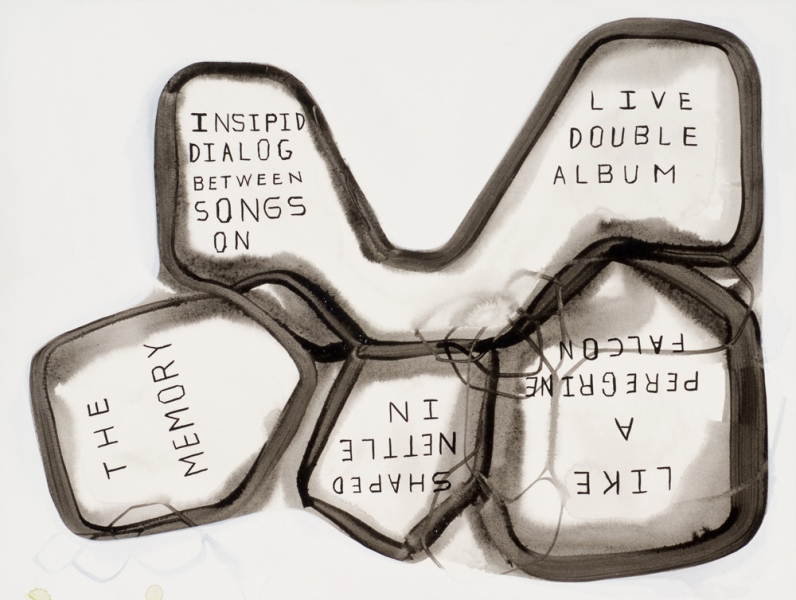 INSIPID
DIALOG
BETWEEN
SONGS
ON
LIVE
DOUBLE
ALBUM
THE
MEMORY
SHAPED
NETTLE
IN
LIKE
A
PEREGRINE
FALCON